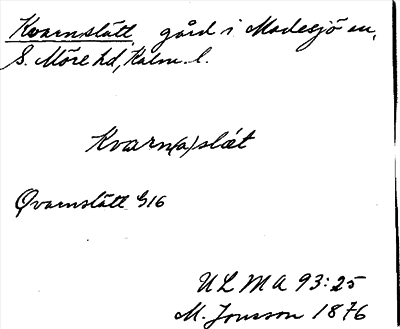 Kvarnslätt, gård i Madesjö sn,
S. Möre hd, Kalm. l.
Kvarn(a)slät
Qvarnslätt 916
ULMA 93:25
M. Jonsson 1876